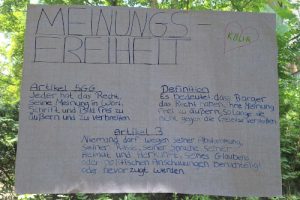 MEINUNGS-
FREIHEIT
Artikel 5GG
Jeder hat das Recht,
seine Meinung in Wort,
Schrift und Bild frei zu
äußern und zu verbreiten
Definition
Es bedeutet dass Bürger
das Recht haben ihre Meinung
frei zu äußern solange sie
nicht gegen die Gesetze verstoßen
Artikel 3
Niemand darf wegen seiner Abstammung,
seiner Rasse, seiner Sprache, seiner
Heimat und Herkunft, seines Glaubens
oder politischen Anschauungen benachteiligt
oder bevorzugt werden